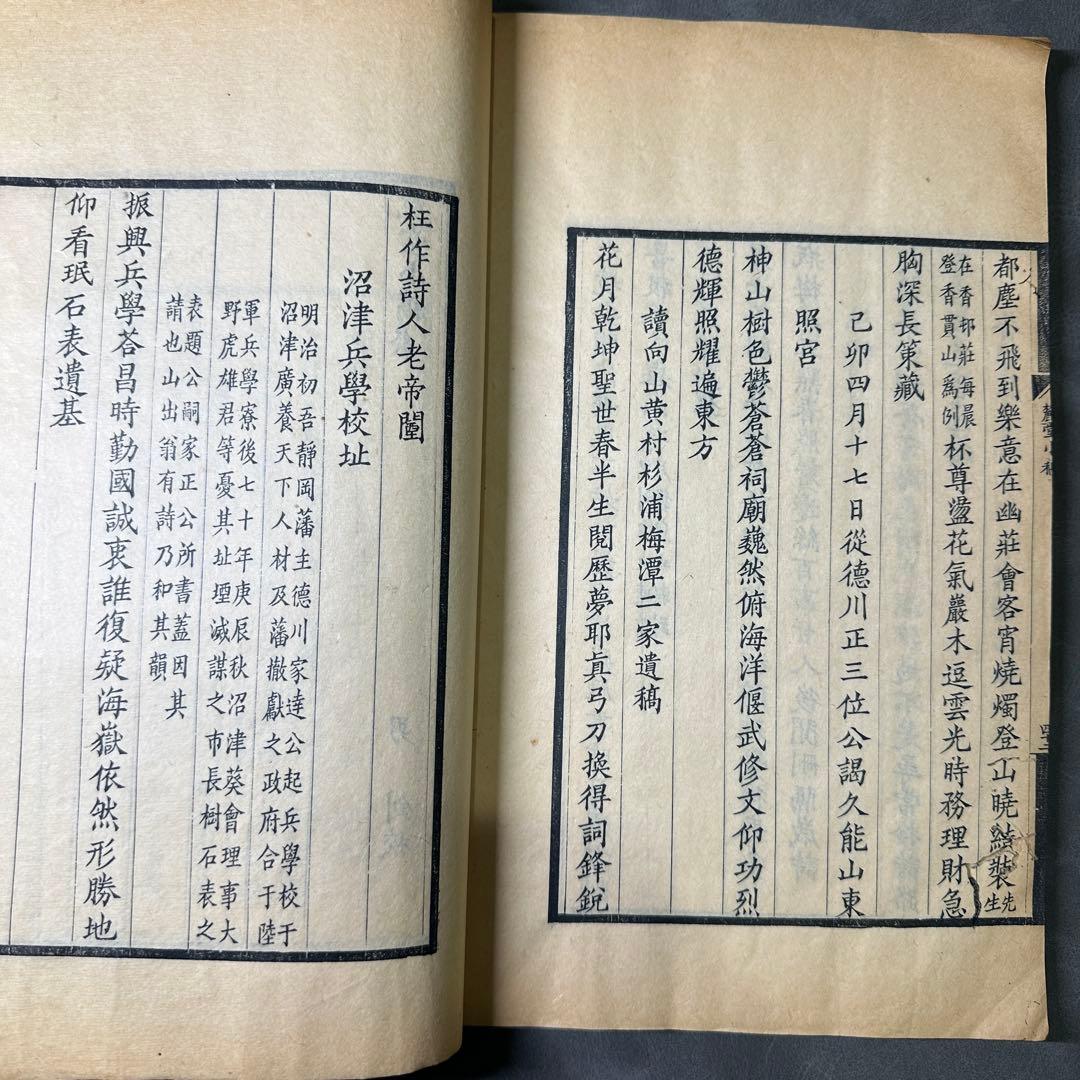 都塵不飛到樂意在幽莊會客宵燒燭登山曉裝先生
在香邨莊每晨
登香貫山爲例
杯尊盪花氣巖木逗雲光時務理財急
胸深長策藏
己卯四月十七日從德川正三位公謁久能山東
照宮
神山樹色鬱蒼蒼祠廟巍然俯海洋偃武修文仰功烈
德輝照耀遍東方
讀向山黄村杉浦梅潭二家遺稿
花月乾坤聖世春半生閱歷夢耶眞弓刀換得詞鋒銳
枉作詩人老帝闉
沼津兵學校址
明治初吾靜岡藩主德川家達公起兵學校于
沼津廣養天下人材及藩撤獻之政府合于陸
軍兵學寮後七十年庚辰秋沼津葵會理事大
野虎雄君等憂其址堙滅謀之市長樹石表之
表題公嗣家正公所書蓋因其
請也山出翁有詩乃和其韻
振興兵學荅昌時勤國誠衷誰復疑海嶽依然形勝地
仰看珉石表遺基